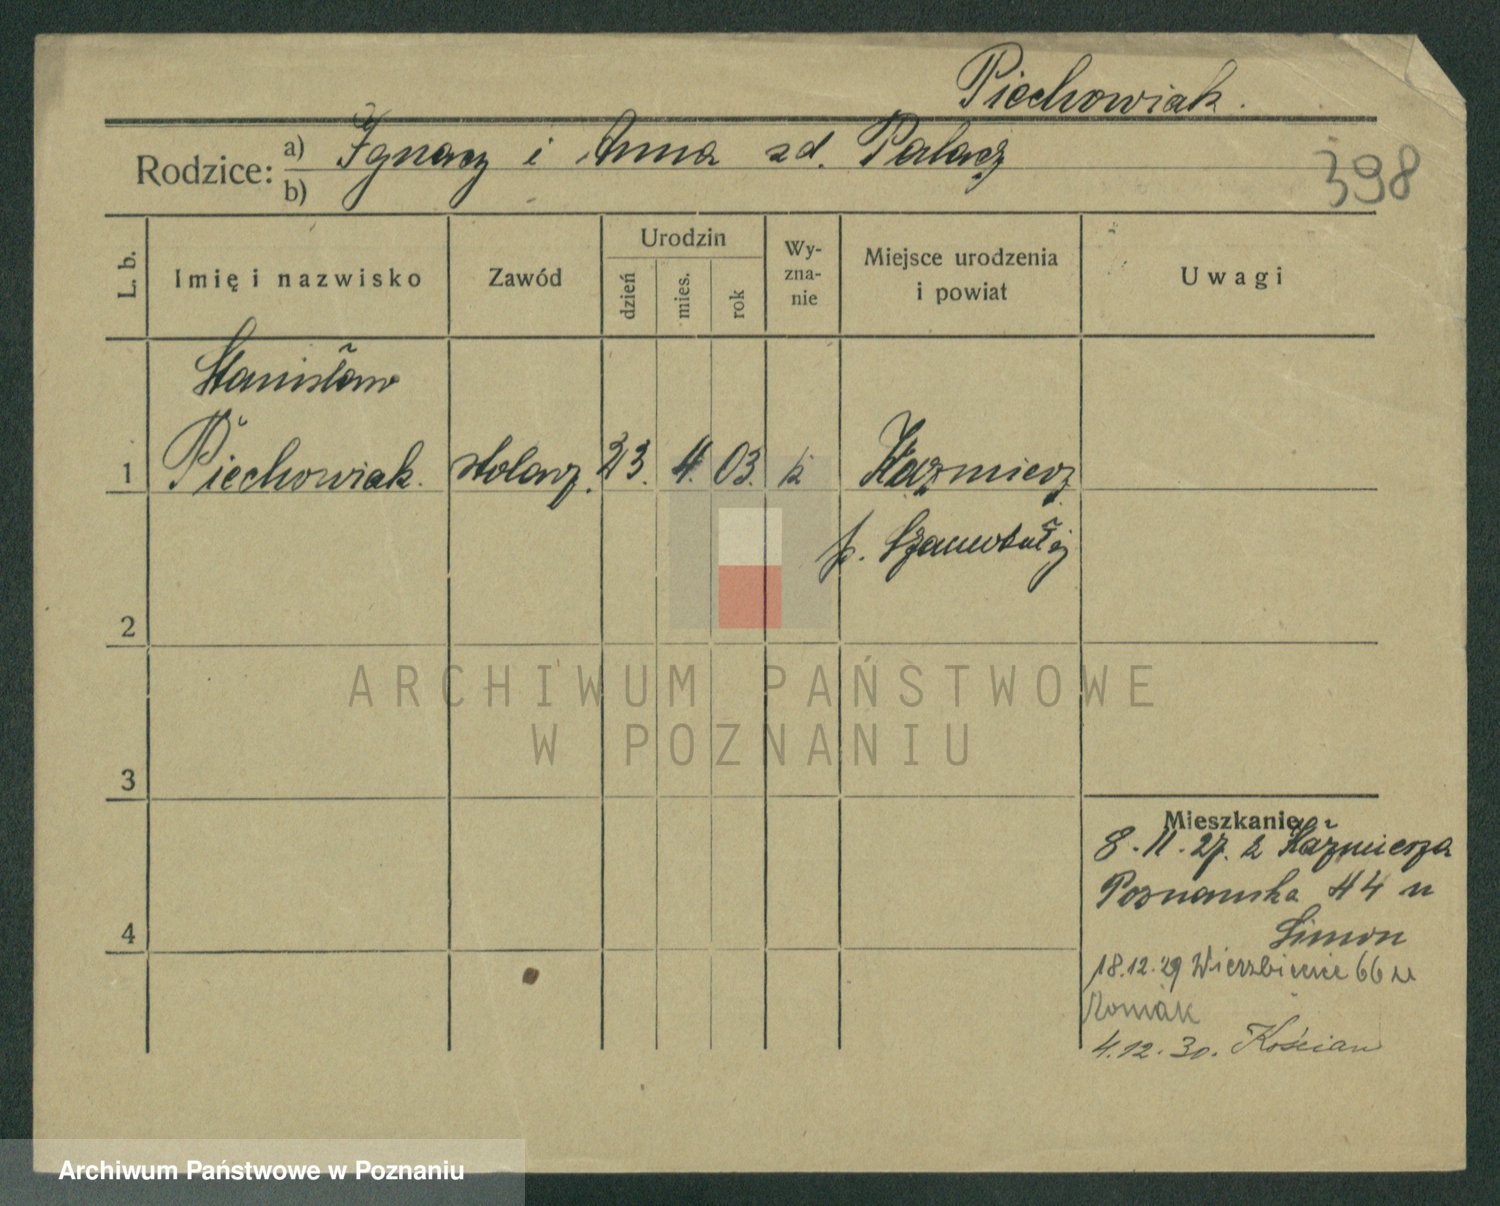 Piechowiak.
Rodzice: a) Ignacy i Anna zd. Palacz
b)
398
L. b.
Imię i nazwisko
Zawód
Urodzin
dzień
mies.
rok
Wy-
zna-
nie
Miejsce urodzenia
i powiat
Uwagi
Stanisław
1 Piechowiak. stolarz. 23. 4. 03. k Kaźmierz
p. Szamotuły
2
3
4
Mieszkanie
8.11.27. z Kaźmierza
Poznańska 44 u
Simon
18.12.29 Wierzbięcie 66 u
Nowak
4.12.30. Kościan
ARCHIWUM PAŃSTWOWE
W POZNANIU
Archiwum Państwowe w Poznaniu